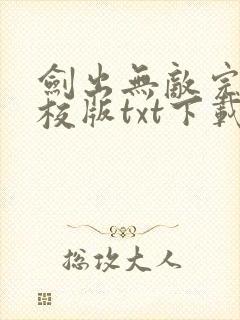 劍出無敵完
校版txt下載
總攻大人